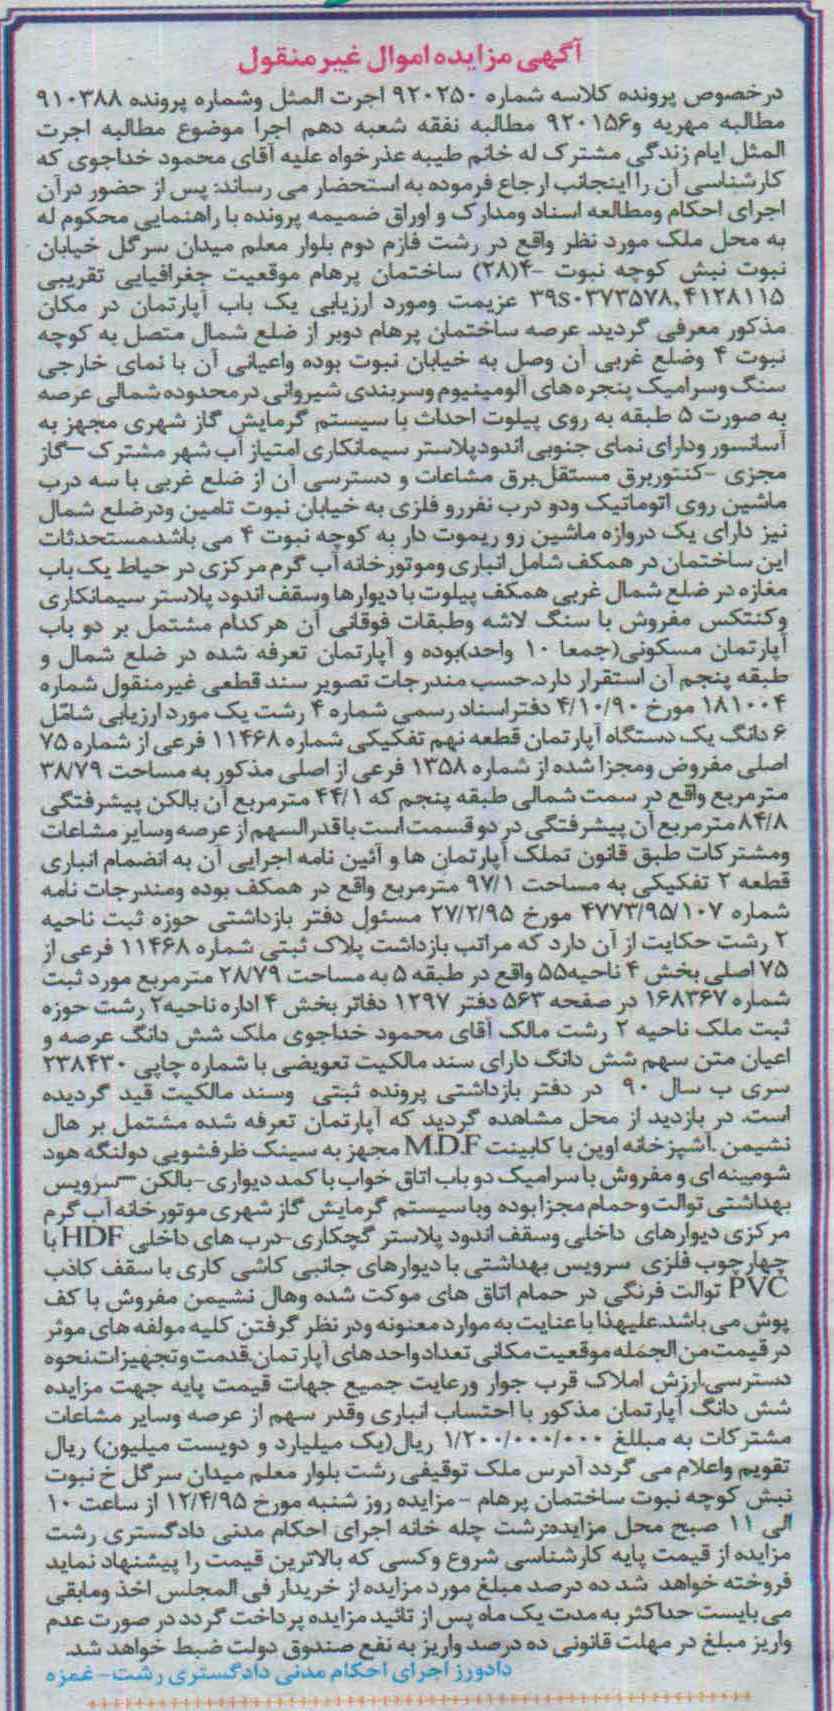 آگهی مزایده اموال غیر منقول
در خصوص پرونده کلاسه شماره ۹۲۰۲۵۰ اجرت المثل وشماره پرونده ۹۱۰۳۸۸
مطالبه مهریه و۹۲۰۱۵۶ مطالبه نفقه شعبه دهم اجرا موضوع مطالبه اجرت
المثل ایام زندگی مشترک له خانم طیبه عذرخواه علیه آقای محمود خداجوی که
کارشناسی آن را اینجانب ارجاع فرموده به استحضار می رساند: پس از حضور در آن
اجرای احکام ومطالعه اسناد ومدارک و اوراق ضمیمه پرونده با راهنمایی محکوم له
به محل ملک مورد نظر واقع در رشت فازم دوم بلوار معلم میدان سرگل خیابان
نبوت نبش کوچه نبوت -۴(۲۸) ساختمان پرهام موقعیت جغرافیایی تقریبی
۳۹S۰۳۷۳۵۷۸,۴۱۲۸۱۱۵ عزیمت ومورد ارزیابی یک باب آپارتمان در مکان
مذکور معرفی گردید. عرصه ساختمان پرهام دوبر از ضلع شمال متصل به کوچه
نبوت ۴ وضلع غربی آن وصل به خیابان نبوت بوده واعیانی آن با نمای خارجی
سنگ وسرامیک پنجره های آلومینیوم وسربندی شیروانی در محدوده شمالی عرصه
به صورت ۵ طبقه به روی پیلوت احداث با سیستم گرمایش گاز شهری مجهز به
آسانسور ودارای نمای جنوبی اندود پلاستر سیمانکاری امتیاز آب شهر مشترک –گاز
مجزی -کنتوربرق مستقل.برق مشاعات و دسترسی آن از ضلع غربی با سه درب
ماشین روی اتوماتیک ودو درب نفررو فلزی به خیابان نبوت تامین ودرضلع شمال
نیز دارای یک دروازه ماشین رو ریموت دار به کوچه نبوت ۴ می باشد.مستحدثات
این ساختمان در همکف شامل انباری وموتورخانه آب گرم مرکزی در حیاط یک باب
مغازه در ضلع شمال غربی همکف پیلوت با دیوارها وسقف اندود پلاستر سیمانکاری
وکنتکس مفروش با سنگ لاشه وطبقات فوقانی آن هر کدام مشتمل بر دو باب
آپارتمان مسکونی(جمعا ۱۰ واحد)بوده و آپارتمان تعرفه شده در ضلع شمال و
طبقه پنجم آن استقرار دارد.حسب مندرجات تصویر سند قطعی غیرمنقول شماره
۱۸۱۰۰۴ مورخ ۴/۱۰/۹۰ دفتر اسناد رسمی شماره ۴ رشت یک مورد ارزیابی شامل
۶ دانگ یک دستگاه آپارتمان قطعه نهم تفکیکی شماره ۱۱۴۶۸ فرعی از شماره ۷۵
اصلی مفروض ومجزا شده از شماره ۱۳۵۸ فرعی از اصلی مذکور به مساحت ۳۸/۷۹
مترمربع واقع در سمت شمالی طبقه پنجم که ۴۴/۱ مترمربع آن بالکن پیشرفتگی
۸۴/۸مترمربع آن پیشرفتگی در دو قسمت است با قدرالسهم از عرصه وسایر مشاعات
ومشترکات طبق قانون تملک آپارتمان ها و آئین نامه اجرایی آن به انضمام انباری
قطعه ۲ تفکیکی به مساحت ۹۷/۱ مترمربع واقع در همکف بوده ومندرجات نامه
شماره ۴۷۷۳/۹۵/۱۰۷ مورخ ۲۷/۲/۹۵ مسئول دفتر بازداشتی حوزه ثبت ناحیه
۲ رشت حکایت از آن دارد که مراتب بازداشت پلاک ثبتی شماره ۱۱۴۶۸ فرعی از
۷۵ اصلی بخش ۴ ناحیه۵۵ واقع در طبقه ۵ به مساحت ۲۸/۷۹ مترمربع مورد ثبت
شماره ۱۶۸۳۶۷ در صفحه ۵۶۳ دفتر ۱۲۹۷ دفاتر بخش ۴ اداره ناحیه۲ رشت حوزه
ثبت ملک ناحیه ۲ رشت مالک آقای محمود خداجوی ملک شش دانگ عرصه و
اعیان متن سهم شش دانگ دارای سند مالکیت تعویضی با شماره چاپی ۲۳۸۴۳۰
سری ب سال ۹۰ در دفتر بازداشتی پرونده ثبتی وسند مالکیت قید گردیده
است. در بازدید از محل مشاهده گردید که آپارتمان تعرفه شده مشتمل بر هال
نشیمن .آشپزخانه اوپن با کابینت M.D.F مجهز به سینک ظرفشویی دولنگه هود
شومینه ای و مفروش با سرامیک دو باب اتاق خواب با کمد دیواری-بالکن –سرویس
بهداشتی توالت وحمام مجزا بوده وبا سیستم گرمایش گاز شهری موتورخانه آب گرم
مرکزی دیوارهای داخلی وسقف اندود پلاستر گچکاری-درب های داخلی HDF با
چهارچوب فلزی سرویس بهداشتی با دیوارهای جانبی کاشی کاری با سقف کاذب
PVC توالت فرنگی در حمام اتاق های موکت شده وهال نشیمن مفروش با کف
پوش می باشد.علیهذا با عنایت به موارد معنونه ودر نظر گرفتن کلیه مولفه های موثر
در قیمت من الجمله موقعیت مکانی تعداد واحد های آپارتمان.قدمت وتجهیزات.نحوه
دسترسی.ارزش املاک قرب جوار ورعایت جمیع جهات قیمت پایه جهت مزایده
شش دانگ آپارتمان مذکور با احتساب انباری وقدر سهم از عرصه وسایر مشاعات
مشترکات به مبللغ ۱/۲۰۰/۰۰۰/۰۰۰ ریال(یک میلیارد و دویست میلیون) ریال
تقویم واعلام می گردد آدرس ملک توقیفی رشت بلوار معلم میدان سرگل خ نبوت
نبش کوچه نبوت ساختمان پرهام - مزایده روز شنبه مورخ ۱۲/۴/۹۵ از ساعت ۱۰
الی ۱۱ صبح محل مزایده:رشت چله خانه اجرای احکام مدنی دادگستری رشت
مزایده از قیمت پایه کارشناسی شروع وکسی که بالاترین قیمت را پیشنهاد نماید
فروخته خواهد شد ده درصد مبلغ مورد مزایده از خریدار فی المجلس اخذ ومابقی
می بایست حداکثر به مدت یک ماه پس از تائید مزایده پرداخت گردد در صورت عدم
واریز مبلغ در مهلت قانونی ده درصد واریز به نفع صندوق دولت ضبط خواهد شد.
دادورز اجرای احکام مدنی دادگستری رشت- غمزه